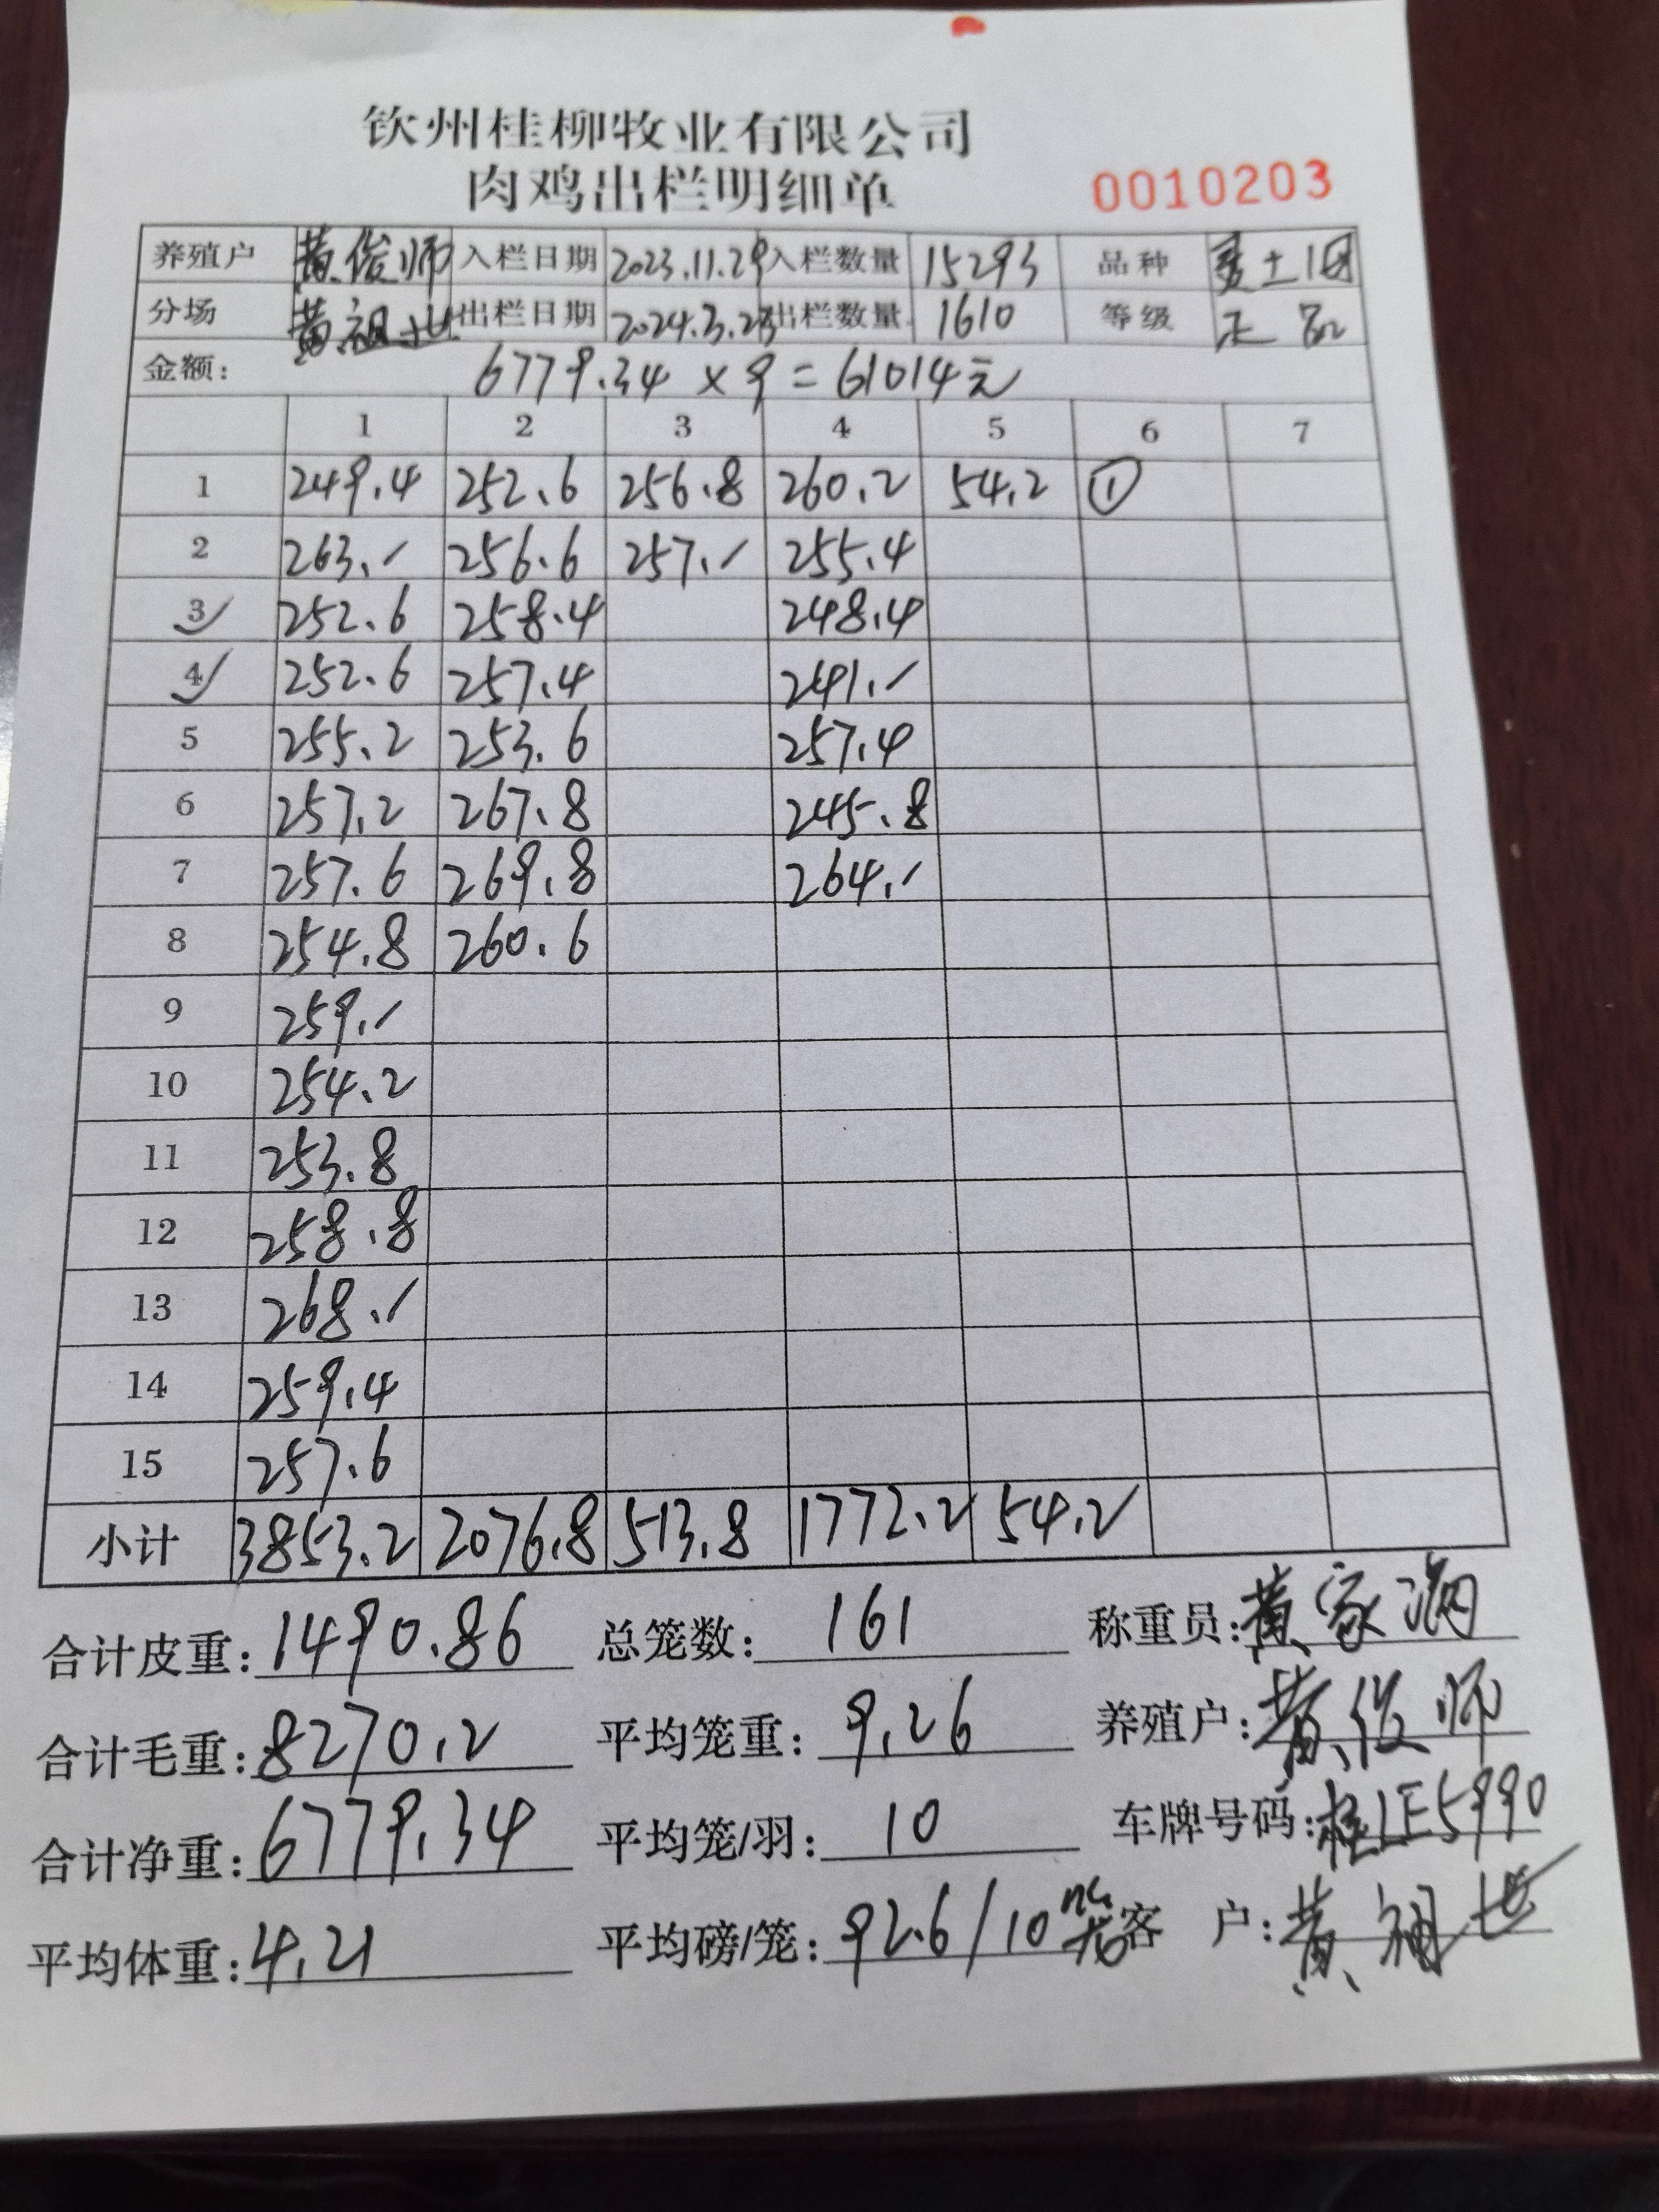 钦州桂柳牧业有限公司
肉鸡出栏明细单
0010203
养殖户 黄俊师 入栏日期 2023.11.29 入栏数量 15293 品种 土1
分场 黄祖 出栏日期 2024.3.23 出栏数量 1610 等级 正品
金额: 6779.34 × 9 = 61014元
1 2 3 4 5 6 7
1 249.4 252.6 256.8 260.2 54.2 ①
2 263.- 256.6 257.- 255.4
3 252.6 258.4 248.4
4 252.6 257.4 241.-
5 255.2 253.6 257.4
6 257.2 267.8 245.8
7 257.6 269.8 264.-
8 254.8 260.6
9 259.-
10 254.2
11 253.8
12 258.8
13 268.-
14 259.4
15 257.6
小计 3853.2 2076.8 513.8 1772.2 54.2
合计皮重: 1490.86 总笼数: 161 称重员: 黄家满
合计毛重: 8270.2 平均笼重: 9.26 养殖户: 黄俊师
合计净重: 6779.34 平均笼/羽: 10 车牌号码: 桂LE5990
平均体重: 4.21 平均磅/笼: 92.6/10笼 客 户: 黄祖